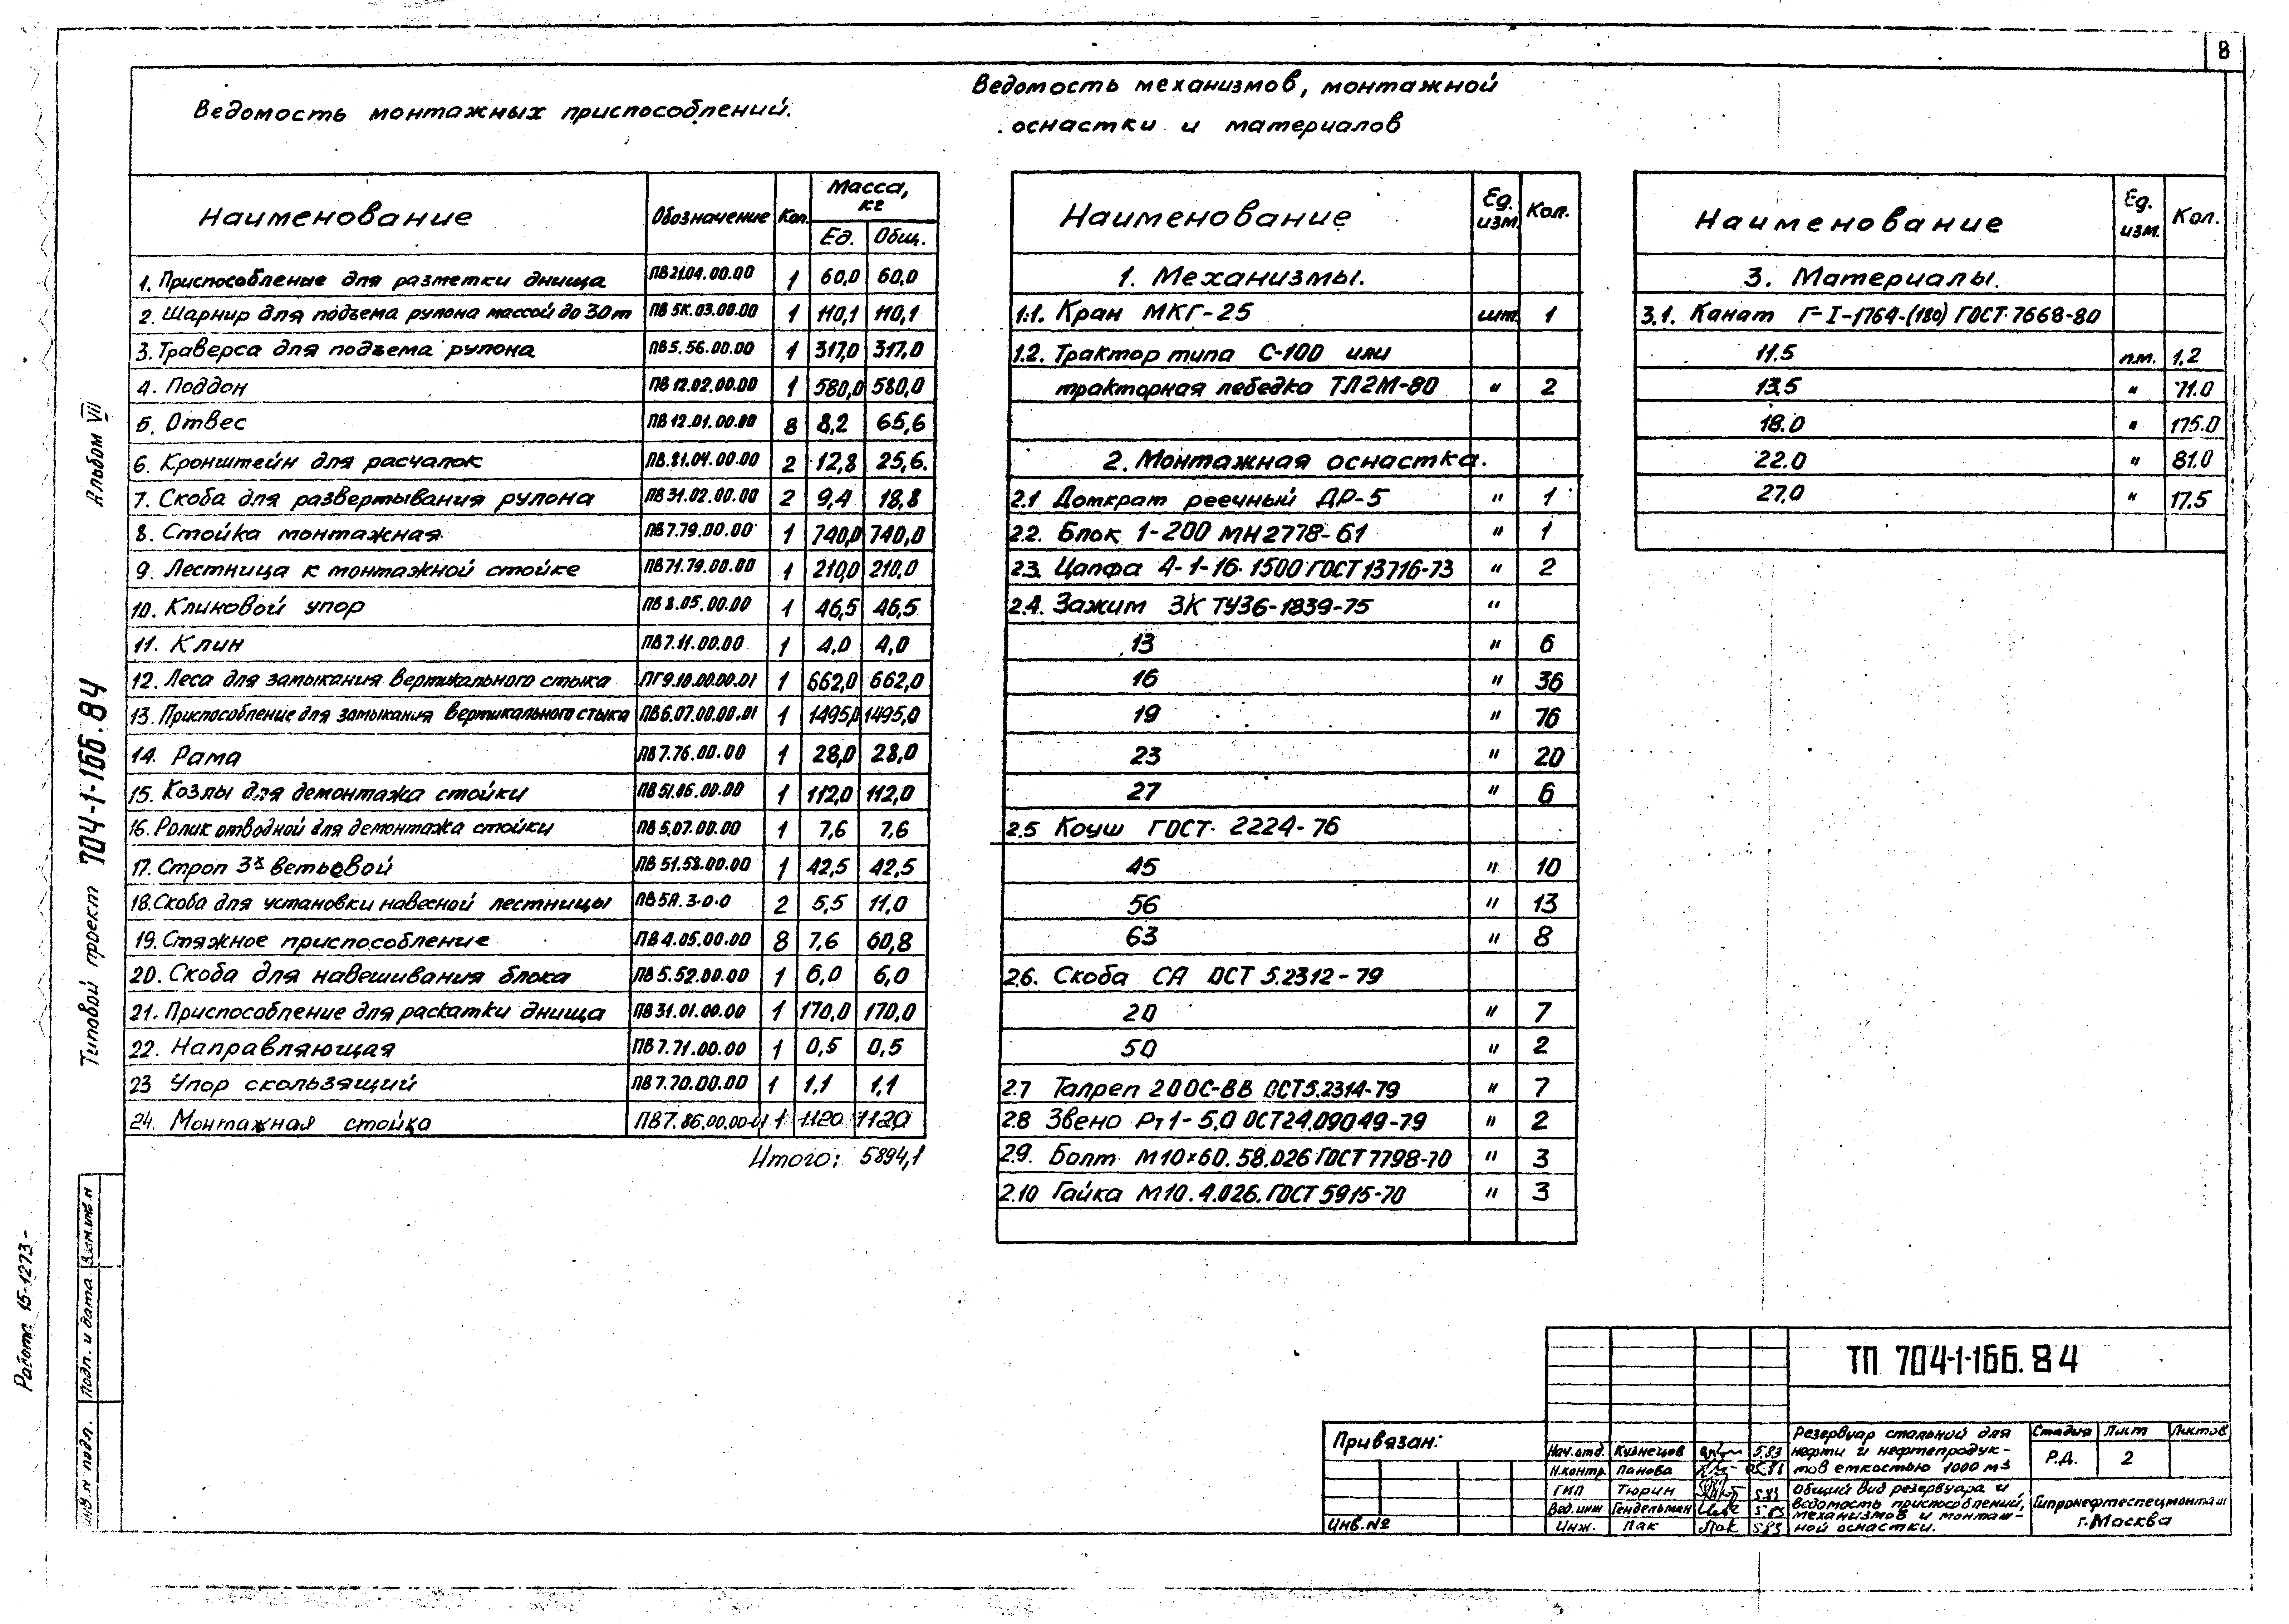 8
Ведомость монтажных приспособлений.
Наименование Обозначение Кол. Масса, кг
Ед. Общ.
1. Приспособление для разметки днища ПВ21.04.00.00 1 60,0 60,0
2. Шарнир для подъема рулона массой до 30т ПВ 5К.03.00.00 1 110,1 110,1
3. Траверса для подъема рулона ПВ5.56.00.00 1 317,0 317,0
4. Поддон ПВ 12.02.00.00 1 580,0 580,0
5. Отвес ПВ 12.01.00.00 8 8,2 65,6
6. Кронштейн для расчалок ПВ.81.04.00.00 2 12,8 25,6.
7. Скоба для развертывания рулона ПВ 31.02.00.00 2 9,4 18,8
8. Стойка монтажная ПВ7.79.00.00 1 740,0 740,0
9. Лестница к монтажной стойке ПВ71.79.00.00 1 210,0 210,0
10. Клиновой упор ПВ 8.05.00.00 1 46,5 46,5
11. Клин ПВ7.11.00.00 1 4,0 4,0
12. Леса для замыкания вертикального стыка ПГ9.10.00.00.01 1 662,0 662,0
13. Приспособление для замыкания вертикального стыка ПВ6.07.00.00.01 1 1495,0 1495,0
14. Рама ПВ7.76.00.00 1 28,0 28,0
15. Козлы для демонтажа стойки ПВ51.06.00.00 1 112,0 112,0
16. Ролик отводной для демонтажа стойки ПВ 5.07.00.00 1 7,6 7,6
17. Строп 3х ветьевой ПВ 51.58.00.00 1 42,5 42,5
18. Скоба для установки навесной лестницы ПВ5А.3-0-0 2 5,5 11,0
19. Стяжное приспособление ПВ4.05.00.00 8 7,6 60,8
20. Скоба для навешивания блока ПВ 5.52.00.00 1 6,0 6,0
21. Приспособление для раскатки днища ПВ31.01.00.00 1 170,0 170,0
22. Направляющая ПВ7.71.00.00 1 0,5 0,5
23 Упор скользящий ПВ7.70.00.00 1 1,1 1,1
24. Монтажная стойка ПВ7.86.00.00-01 1 1120 1120
Итого: 5894,1
Ведомость механизмов, монтажной
оснастки и материалов
Наименование Ед. изм. Кол.
1. Механизмы.
1.1. Кран МКГ-25 шт. 1
1.2. Трактор типа С-100 или
тракторная лебедка ТЛ2М-80 " 2
2. Монтажная оснастка.
2.1 Домкрат реечный ДР-5 " 1
2.2. Блок 1-200 МН2778-61 " 1
2.3. Цапфа 4-1-16-1500 ГОСТ 13716-73 " 2
2.4. Зажим ЗК ТУ36-1839-75 "
13 " 6
16 " 36
19 " 76
23 " 20
27 " 6
2.5 Коуш ГОСТ 2224-76
45 " 10
56 " 13
63 " 8
2.6. Скоба СА ОСТ 5.2312-79
20 " 7
50 " 2
2.7 Талреп 200С-ВВ ОСТ5.2314-79 " 7
2.8 Звено Рт1-5,0 ОСТ24.090 49-79 " 2
2.9. Болт М10×60.58.026 ГОСТ 7798-70 " 3
2.10 Гайка М10.4.026.ГОСТ 5915-70 " 3
Наименование Ед. изм. Кол.
3. Материалы.
3.1. Канат Г-I-1764-(180) ГОСТ 7668-80
11.5 п.м. 1,2
13,5 " 71.0
18.0 " 175.0
22.0 " 81.0
27.0 " 17.5
Альбом VII
Типовой проект 704-1-166.84
Работа 15-1273-
Взам.инв.н
Подп. и дата
инв.н подл.
Привязан:
Инв.№
ТП 704-1-166.84
Нач.отд. Кузнецов 5.83
Н.контр. Панова
ГИП Тюрин 5.83
Вед.инж Гендельман 5.83
Инж. Пак 5.83
Резервуар стальной для
нефти и нефтепродук-
тов емкостью 1000 м3
Стадия Лист Листов
Р.Д. 2
Общий вид резервуара и
ведомость приспособлений,
механизмов и монтаж-
ной оснастки.
Гипронефтеспецмонтаж
г.Москва